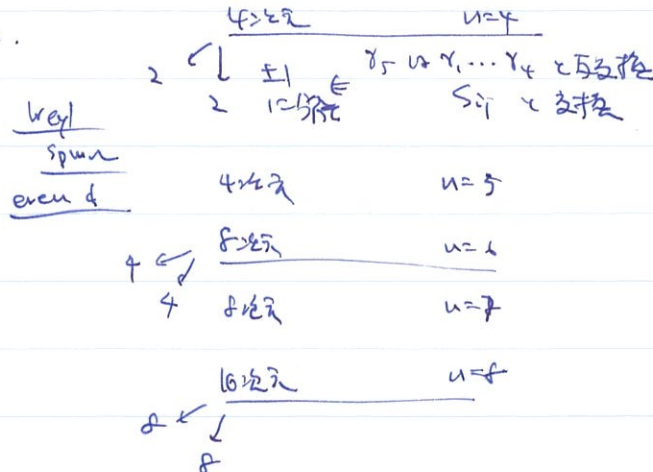 4次元 n=4
2 2 ±1 に分解 ⇐ γ5 は γ1…γ4 と反交換
Sij と交換
Weyl
spinor
even d 4次元 n=5
4 4 8次元 n=6
8次元 n=7
16次元 n=8
8 8